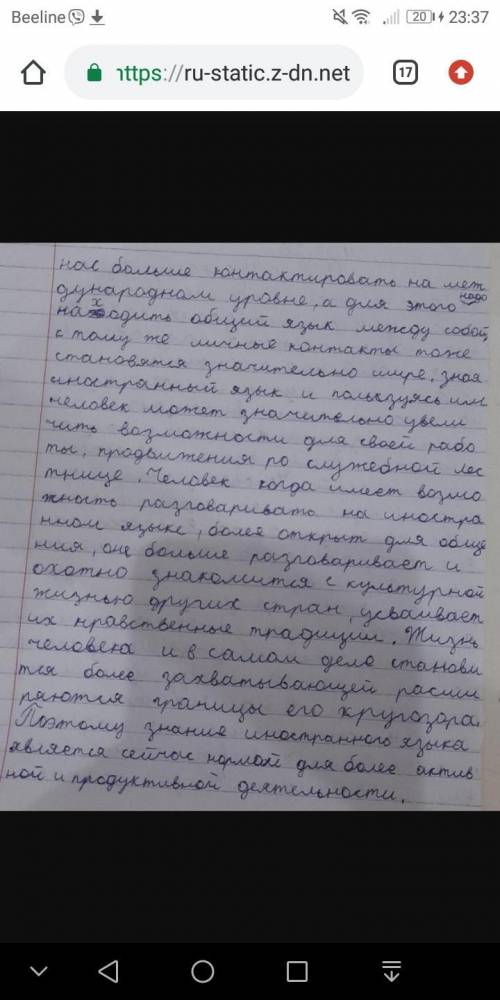 Beeline 20 23:37
https://ru-static.z-dn.net 17
нас больше контактировать на меж
дународном уровне, а для этого надо
находить общий язык между собой,
к тому же личные контакты тоже
становятся значительно шире. зная
иностранный язык и пользуясь им
человек может значительно увели
чить возможности для своей рабо
ты, продвижения по служебной лес
тнице. Человек когда имеет возмо
жность разговаривать на иностра
нном языке, более открыт для обще
ния, оне больше разговаривает и
охотно знакомится с культурной
жизнью других стран, усваивает
их нравственные традиции. Жизнь
человека и в самом деле станови
тся более захватывающей расши
ряются границы его кругозора.
Поэтому знание иностранного языка
является сейчас нормой для более актив
ной и продуктивной деятельности.